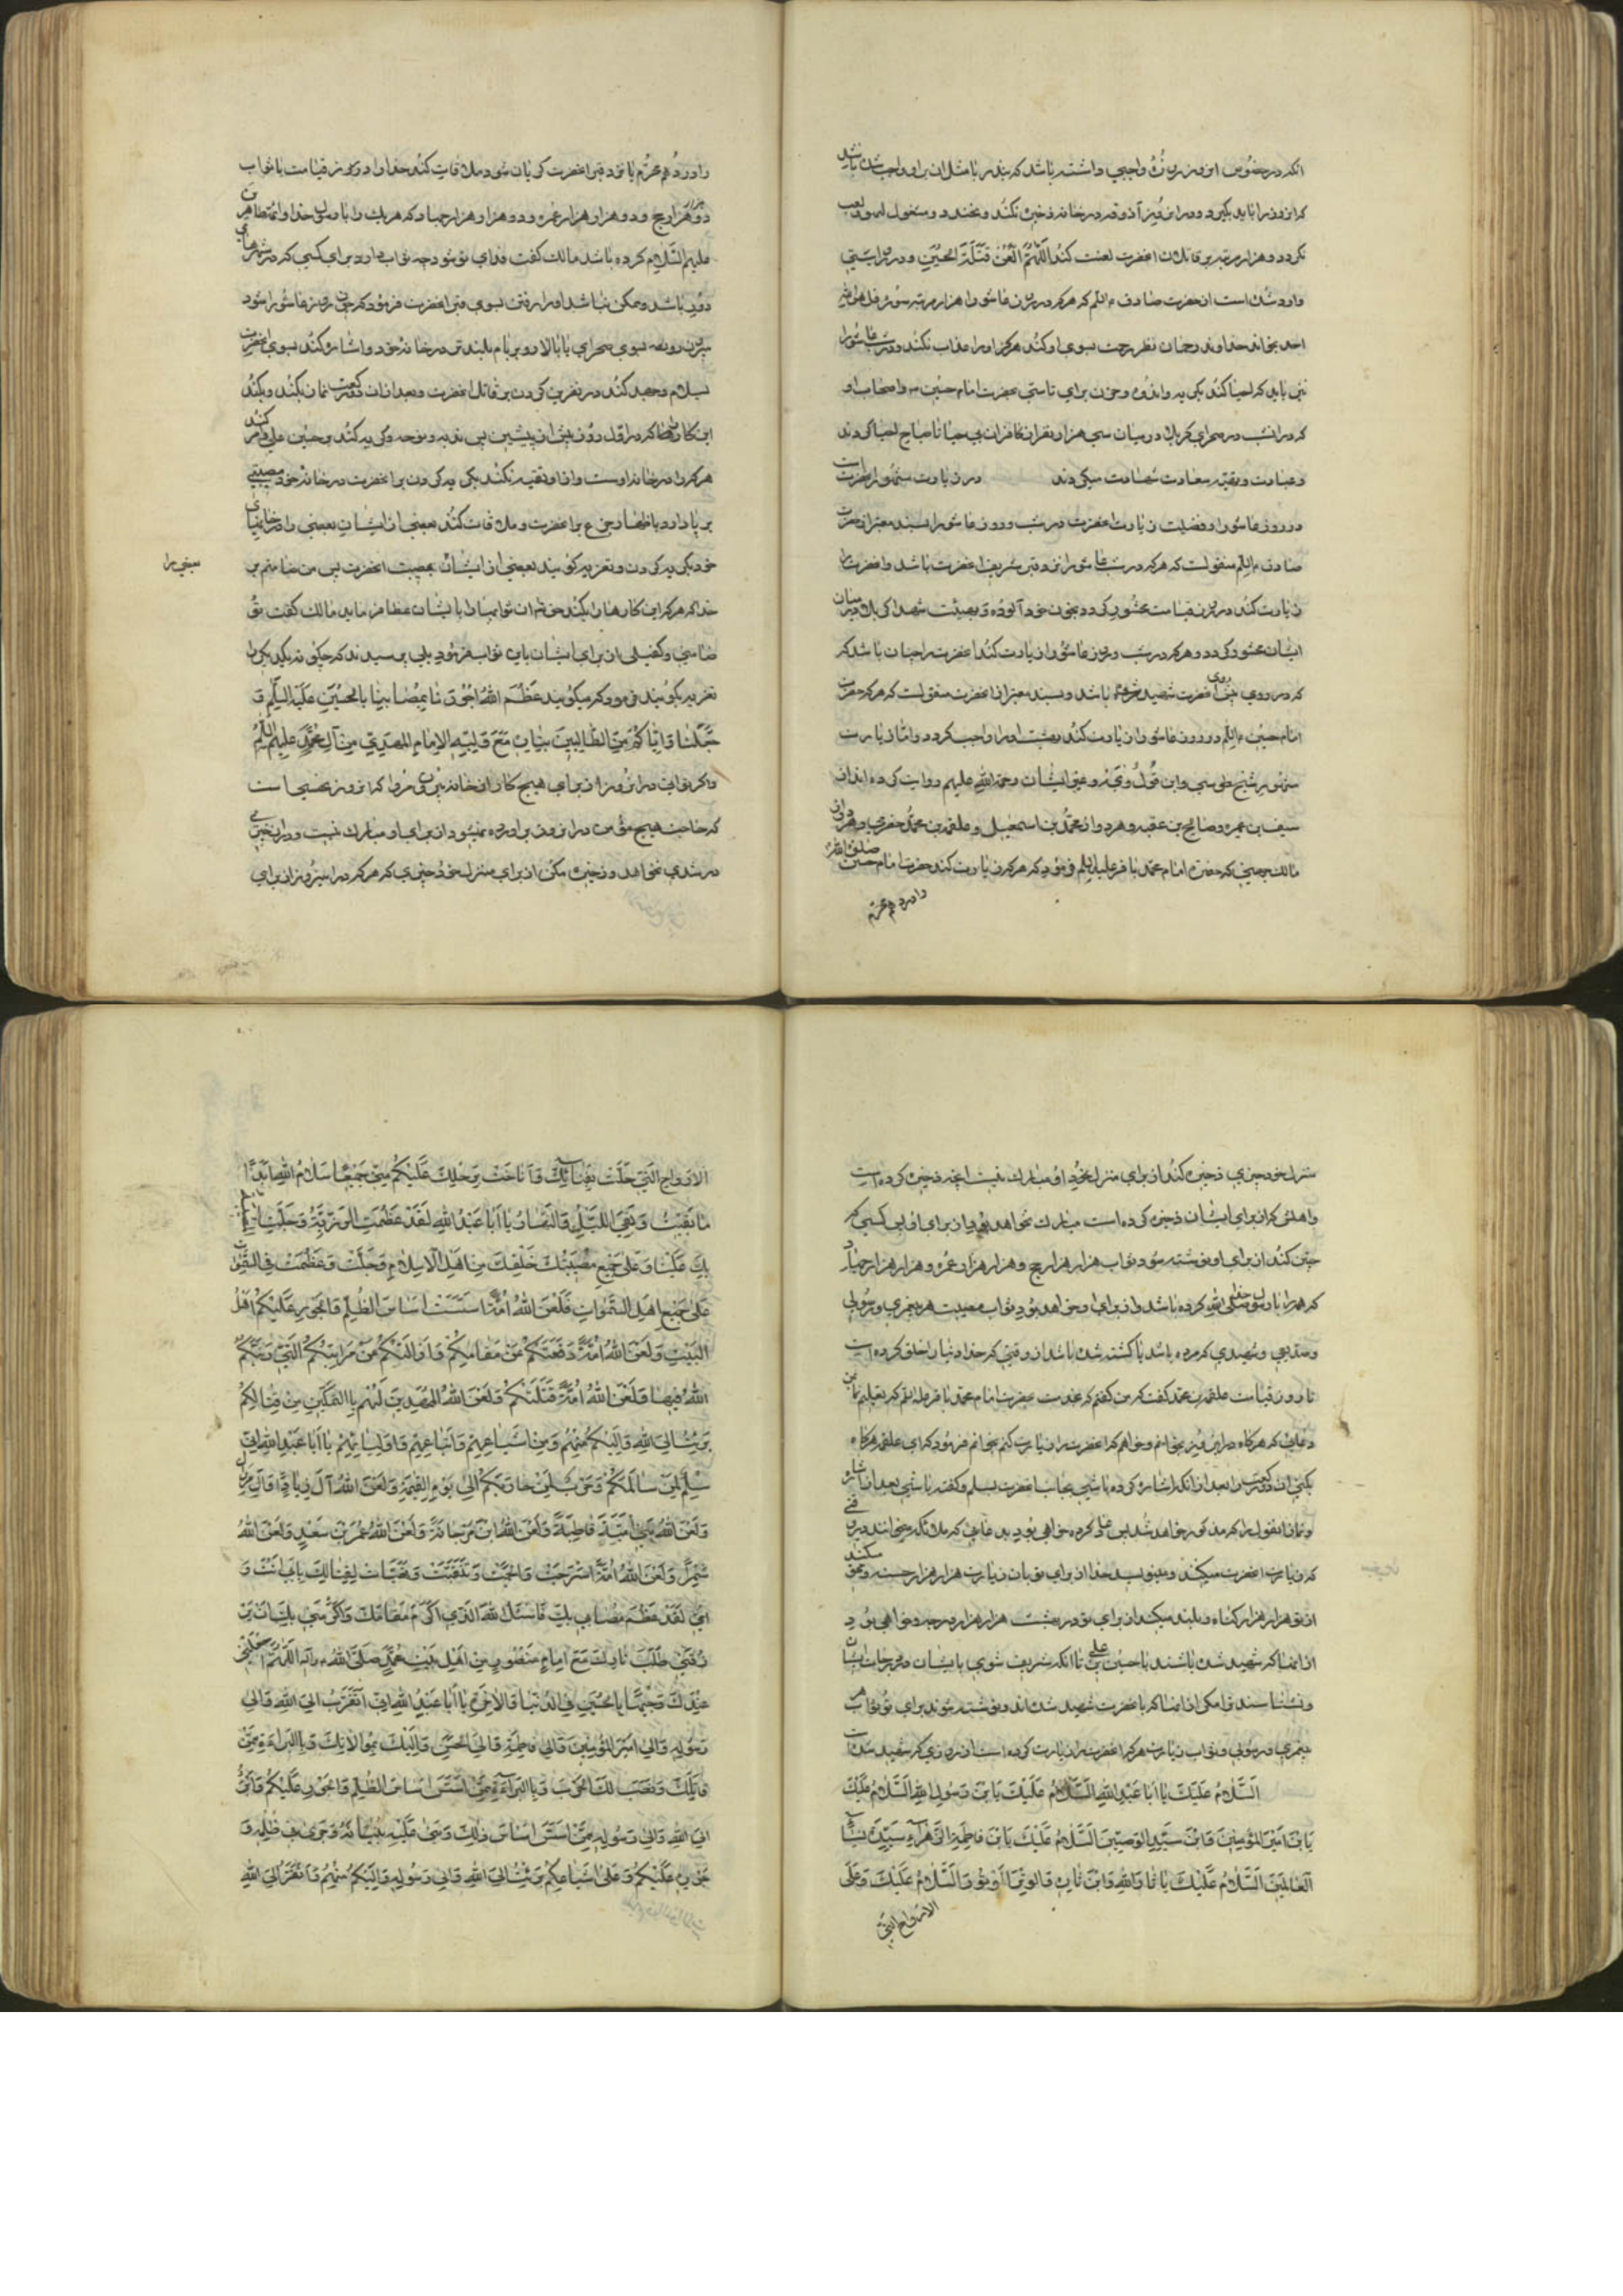 انکه در خصوص این روز روزهٔ واجبی داشته باشد که بنذر یا مثل ان بر او واجب شده باشد
نکردد و هزار مرتبه بر قاتلان انحضرت لعنت کند اَللّهُمَّ الْعَنْ قَتَلَةَ الحُسَیْنِ و در روایتی
وارد شده است از حضرت صادق ء که هرکه در روز عاشورا هزار مرتبه سوره قل هو الله
احد بخواند خداوند رحمان نظر رحمت بسوی او کند و هرکز او را عذاب نکند و در شب عاشورا
نیز باید که احیا کند بکریه و اندوه و حزن برای تاسی بحضرت امام حسین و اصحاب او
که در انشب در صحرای کربلا در میان سی هزار نفر از کافران بی حیا تا صباح احیا کردند
در روز عاشورا و فضیلت زیارت انحضرت در شب و روز عاشورا بسند معتبر از حضرت
صادق منقولست که هرکه در شب عاشورا نزد قبر شریف انحضرت باشد و انحضرت را
زیارت کند در روز قیامت محشور کردد بخون خود آلوده و بهیئت شهدای کربلا در میان
ایشان محشور کردد و هرکه در شب و روز عاشورا زیارت کند انحضرت را چنان باشد که
که در روی پیش روی انحضرت شهید شده باشد و بسند معتبر از انحضرت منقولست که هرکه حضرت
امام حسین را در روز عاشورا زیارت کند بهشت او را واجب کردد و اما زیارت
مشهور شیخ طوسی و ابن قولویه و غیر ایشان رحمة الله علیهم روایت کرده اند از
سیف بن عمیره و صالح بن عقبه و هر دو از محمد بن اسمعیل و علقمه بن محمد حضرمی و هر دو از
مالک جهنی که حضرت امام محمد باقر علیه السلام فرمود که هرکه زیارت کند حضرت امام حسین صلوات الله
را در دهم محرم
را در دهم محرم یا نزد قبر انحضرت کریان شود ملاقات کند خدا را در روز قیامت با ثواب
دو هزار هزار حج و دو هزار هزار عمره و دو هزار هزار جهاد که هر یک را با رسول خدا و ائمه طاهرین
علیهم السلام کرده باشد مالک کفت فدای تو شوم چه ثواب دارد برای کسی که در شهرهای
دور باشد و ممکن نباشد او را رفتن بسوی قبر انحضرت فرمود که چون روز عاشورا شود
بیرون رود بسوی صحرای یا بالا رود بر بام بلندتر در خانه خود و اشاره کند بسوی انحضرت
بسلام و جهد کند در نفرین کردن بر قاتل انحضرت و بعد از ان دو رکعت نماز بکند و بکند
این کار را در اول روز پیش از پیشین پس ندبه و نوحه و کریه کند بر حسین علی و امر کند
هرکه را در خانه اوست و از او تقیه نکند بکریه کردن بر انحضرت و در خانه خود مصیبتی
بر پا دارد باظهار جزع بر انحضرت و ملاقات کنند بعضی از ایشان بعضی را در خانهای
خود بکریه کردن و تعزیه کویند بعضی از ایشان بمصیبت انحضرت پس من ضامنم بر
بعضی را
خدا که هرکه این کارها را بکند جمیع ان ثوابها را بایشان عطا فرماید مالک کفت تو
ضامنی و کفیلی از برای ایشان باین ثواب فرمود بلی پرسیدند که چکونه یکدیکر را
تعزیه بکویند فرمود که میکویند عَظَّمَ اللهُ اُجُورَنا بِمُصابِنا بِالحُسَیْنِ عَلَیهِ السَّلام وَ
جَعَلَنا وَاِیّاکُمْ مِنَ الطّالِبینَ بِثارِهِ مَعَ وَلِیِّهِ الاِمامِ المَهدِیِّ مِنْ آلِ مُحَمَّدٍ عَلَیهِمُ السَّلامُ
و اکر توانی در ان روز از برای هیچ کار از خانه بیرون مرو که ان روز نحسی است
که حاجت هیچ مؤمن در ان روز براورده نمیشود و اکر بر اید از برای او مبارک نیست و در ان خیری
و رشدی نخواهد و ذخیره مکن از برای منزل خود چیزی که هرکه در این روز از برای
منزل خود چیزی ذخیره کند از برای منزل خود او مبارک نیست انچه ذخیره کرده است
و اهلی که از برای ایشان ذخیره کرده است مبارک نخواهد بود و از برای او پس کسی که
چنین کند از برای او نوشته شود ثواب هزار هزار حج و هزار هزار عمره و هزار هزار جهاد
که همه را با رسول خدا صلی الله کرده باشد و از برای او خواهد بود ثواب مصیبت هر پیغمبری و رسولی
و صدیقی و شهیدی که مرده باشد یا کشته شده باشد از وقتی که خدا دنیا را خلق کرده است
تا روز قیامت علقمه بن محمد کفت که من کفتم که بخدمت حضرت امام محمد باقر علیه السلام که تعلیم نما بمن
دعائی که هرکاه در این روز بخوانم و خواهم که انحضرت را زیارت کنم بخوانم فرمود که ای علقمه هرکاه
بکنی ان دو رکعت را بعد از انکه اشاره کرده باشی بجانب انحضرت بسلام و کفته باشی بعد از اشاره
که زیارت انحضرت میکنند و بنویسد خدا از برای تو بان زیارت هزار هزار حسنه و محو میکند
از تو هزار هزار کناه و بلند میکند از برای تو در بهشت هزار هزار درجه و خواهی بود
از انها که شهید شده باشند با حسین بن علی تا انکه شریک شوی با ایشان در درجات ایشان
و نشناسند ترا مکر از انها که با انحضرت شهید شده اند و نوشته شود برای تو ثواب هر
پیغمبری و رسولی و ثواب زیارت هرکه انحضرت را زیارت کرده است از روزی که شهید شده است
اَلسَّلامُ عَلَیْکَ یا اَبا عَبْدِ اللهِ اَلسَّلامُ عَلَیْکَ یَابْنَ رَسُولِ اللهِ اَلسَّلامُ عَلَیْکَ
یَابْنَ اَمیرِ المُؤْمِنینَ وَابْنَ سَیِّدِ الوَصِیّینَ اَلسَّلامُ عَلَیْکَ یَابْنَ فاطِمَةَ الزَّهْراءِ سَیِّدَةِ نِساءِ
العالَمینَ اَلسَّلامُ عَلَیْکَ یا ثارَ اللهِ وَابْنَ ثارِهِ وَالوِتْرَ المَوْتُورَ اَلسَّلامُ عَلَیْکَ وَعَلَی
الارواح التی
الاَرْواحِ الَّتی حَلَّتْ بِفِنائِکَ وَاَناخَتْ بِرَحْلِکَ عَلَیْکُمْ مِنّی جَمیعًا سَلامُ اللهِ اَبَدًا
ما بَقیتُ وَبَقِیَ اللَّیْلُ وَالنَّهارُ یا اَبا عَبْدِ اللهِ لَقَدْ عَظُمَتِ الرَّزِیَّةُ وَجَلَّتِ المُصیبَةُ
بِکَ عَلَیْنا وَعَلی جَمیعِ اَهْلِ الاِسْلامِ وَجَلَّتْ وَعَظُمَتْ مُصیبَتُکَ فِی السَّمواتِ
عَلی جَمیعِ اَهْلِ السَّمواتِ فَلَعَنَ اللهُ اُمَّةً اَسَّسَتْ اَساسَ الظُّلْمِ وَالجَوْرِ عَلَیْکُمْ اَهْلَ
البَیْتِ وَلَعَنَ اللهُ اُمَّةً دَفَعَتْکُمْ عَنْ مَقامِکُمْ وَاَزالَتْکُمْ عَنْ مَراتِبِکُمُ الَّتی رَتَّبَکُمُ
اللهُ فیها وَلَعَنَ اللهُ اُمَّةً قَتَلَتْکُمْ وَلَعَنَ اللهُ المُمَهِّدینَ لَهُمْ بِالتَّمْکینِ مِنْ قِتالِکُمْ
بَرِئْتُ اِلَی اللهِ وَاِلَیْکُمْ مِنْهُمْ وَمِنْ اَشْیاعِهِمْ وَاَتْباعِهِمْ وَاَوْلِیائِهِمْ یا اَبا عَبْدِ اللهِ اِنّی
سِلْمٌ لِمَنْ سالَمَکُمْ وَحَرْبٌ لِمَنْ حارَبَکُمْ اِلی یَوْمِ القِیمَةِ وَلَعَنَ اللهُ آلَ زِیادٍ وَآلَ مَرْوانَ
وَلَعَنَ اللهُ بَنی اُمَیَّةَ قاطِبَةً وَلَعَنَ اللهُ ابْنَ مَرْجانَةَ وَلَعَنَ اللهُ عُمَرَ بْنَ سَعْدٍ وَلَعَنَ اللهُ
شِمْرًا وَلَعَنَ اللهُ اُمَّةً اَسْرَجَتْ وَاَلْجَمَتْ وَتَنَقَّبَتْ وَتَهَیَّاَتْ لِقِتالِکَ بِاَبی اَنْتَ وَ
اُمّی لَقَدْ عَظُمَ مُصابی بِکَ فَاَسْئَلُ اللهَ الَّذی اَکْرَمَ مَقامَکَ وَاَکْرَمَنی بِکَ اَنْ
یَرْزُقَنی طَلَبَ ثارِکَ مَعَ اِمامٍ مَنْصُورٍ مِنْ اَهْلِ بَیْتِ مُحَمَّدٍ صَلَّی اللهُ عَلَیهِ وَآلِهِ اَللّهُمَّ اجْعَلْنی
عِنْدَکَ وَجیهًا بِالحُسَیْنِ فِی الدُّنْیا وَالآخِرَةِ یا اَبا عَبْدِ اللهِ اِنّی اَتَقَرَّبُ اِلَی اللهِ وَاِلی
رَسُولِهِ وَاِلی اَمیرِ المُؤْمِنینَ وَاِلی فاطِمَةَ وَاِلَی الحَسَنِ وَاِلَیْکَ بِمُوالاتِکَ وَبِالبَراءَةِ مِمَّنْ
قاتَلَکَ وَنَصَبَ لَکَ الحَرْبَ وَبِالبَراءَةِ مِمَّنْ اَسَّسَ اَساسَ الظُّلْمِ وَالجَوْرِ عَلَیْکُمْ وَاَبْرَءُ
اِلَی اللهِ وَاِلی رَسُولِهِ مِمَّنْ اَسَّسَ اَساسَ ذلِکَ وَبَنی عَلَیْهِ بُنْیانَهُ وَجَری فی ظُلْمِهِ وَ
جَوْرِهِ عَلَیْکُمْ وَعَلی اَشْیاعِکُمْ بَرِئْتُ اِلَی اللهِ وَاِلی رَسُولِهِ وَاِلَیْکُمْ مِنْهُمْ وَاَتَقَرَّبُ اِلَی اللهِ